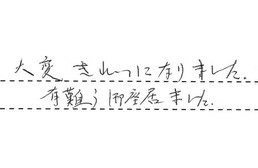 大変、きれいになりました。
有難う御座居ました。